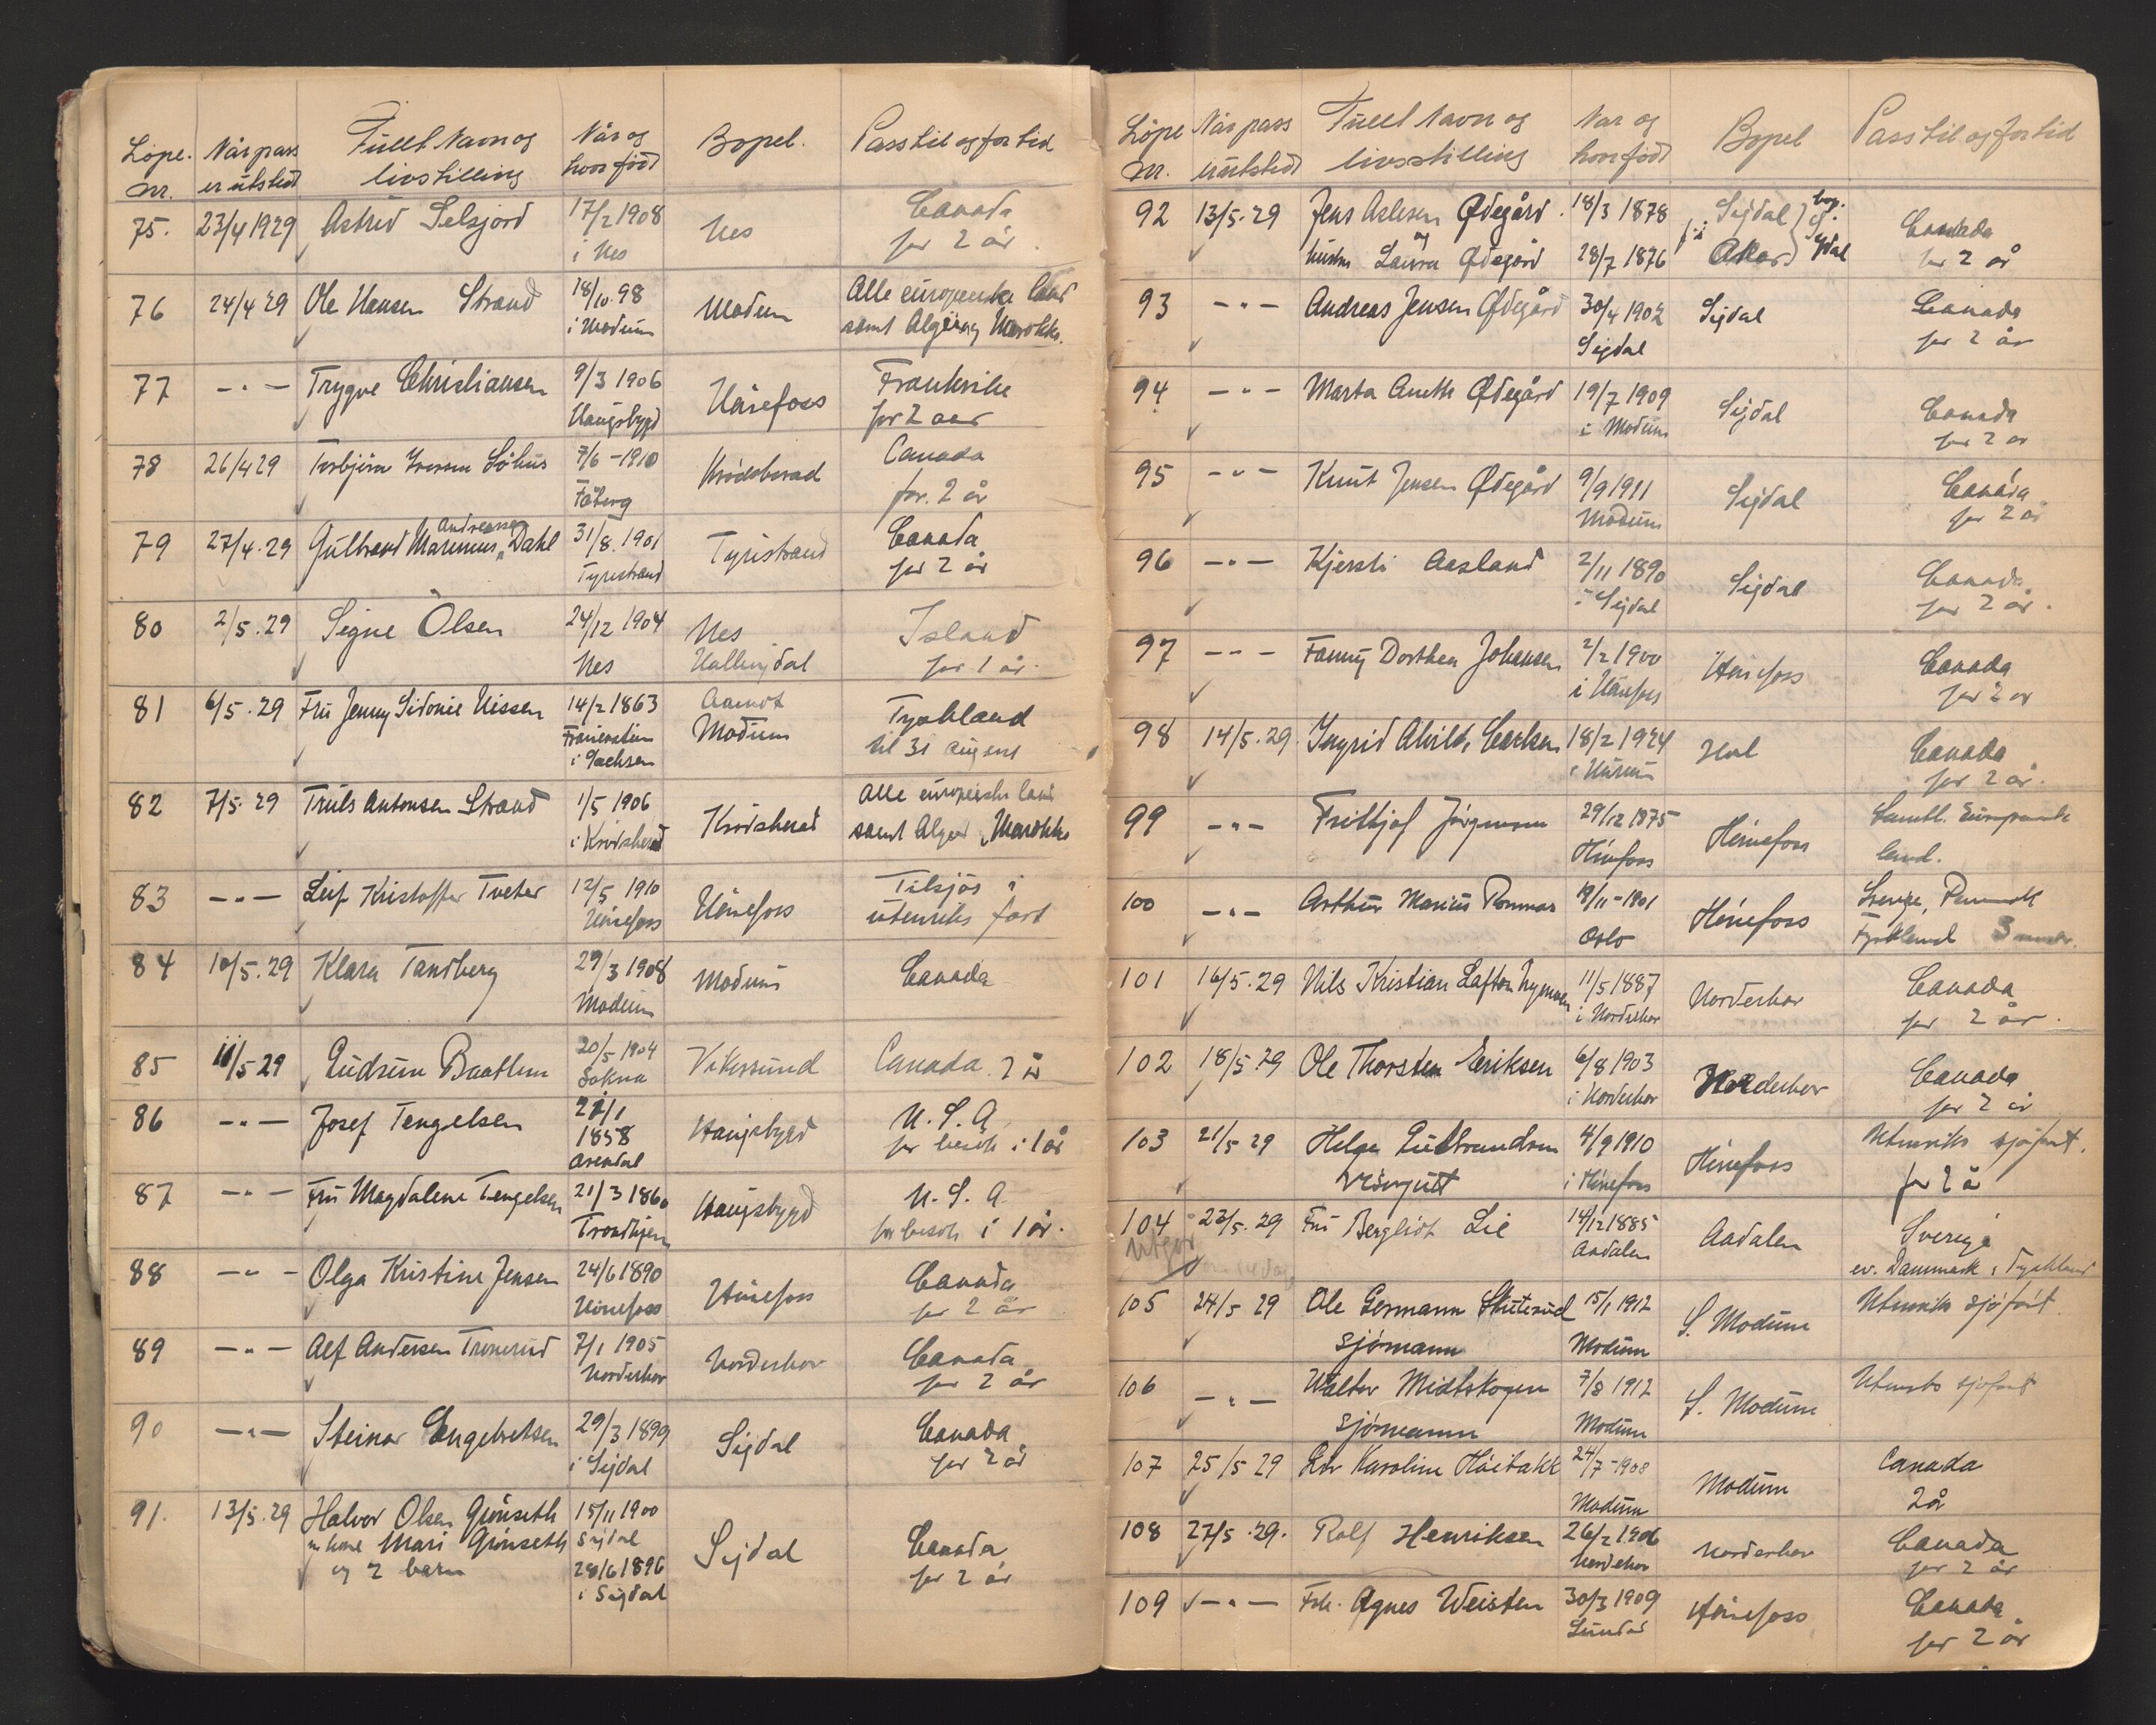 Løpe. nr. Når pass er utstedt Fullt Navn og livstilling Når og hvor født Bopel. Pass til og for tid
75. 23/4 1929 Astrid Selsjord 17/2 1908 Nes Canada
i Nes for 2 år.
76 24/4 29 Ole Hansen Strand 18/10 98 Modum Alle europeiske land
i Modum samt Alger og Marokko.
77 -"- Trygve Christiansen 9/3 1906 Hönefoss Frankrike
Haugsbygd for 2 aar
78 26/4 29 Torbjörn Iversen Löhus 7/6-1910 Krödsherad Canada
Fåberg for. 2 år
Andreassen
79 27/4.29 Gulbrand Marinius Dahl 31/8.1901 Tyristrand Canada
Tyristrand for 2 år
80 2/5.29 Signe Olsen 24/12 1904 Nes Island
Nes Hallingdal for 1 år.
81 6/5.29 Fru Jenny Sidonie Nissen 14/2 1863 Aamot Tyskland
i Sachsen Modum til 31 august
82 7/5.29 Truls Antonsen Strand 1/5 1906 Krödsherad Alle europeiske land
i Krödsherad samt Alger Marokko
83 -"- Leif Kristoffer Tveter 12/5 1910 Hönefoss Tilsjös i
Hönefoss utenriks fart
84 10/5.29 Klara Tandberg 29/3 1908 Modum Canada
Modum
85 11/5 29 Gudrun Baathen 20/5 1904 Vikersund Canada 2 år
Sokna
86 -"- Josef Tengelsen 21/1 Haugsbygd U.S.A.
1858 for besök i 1 år
Arendal
87 -"- Fru Magdalene Tengelsen 21/3 1860 Haugsbygd U.S.A.
Trondhjem for besök i 1 år.
88 -"- Olga Kristine Jensen 24/6 1890 Hönefoss Canada
Hönefoss for 2 år
89 -"- Alf Andersen Tronrud 7/1 1905 Norderhov Canada
Norderhov for 2 år
90 -"- Steinar Engebretsen 29/3 1899 Sigdal Canada
i Sigdal for 2 år
91. 13/5.29 Halvor Olsen Grönseth 15/11 1900 Sigdal Canada
m kone Mari Grönseth Sigdal for 2 år
og 2 barn 28/6 1896
i Sigdal
Löpe nr. Når pass er utstedt Fullt Navn og livsstilling Når og hvor født Bopel Pass til og for tid
92 13/5.29 Jens Aslesen Ødegård. 18/3 1878 f. i Sigdal bop. Canada
og
hustru Laura Ødegård 28/7 1876 Aker Sigdal for 2 år
93 -"- Andreas Jensen Ødegård 30/4 1902 Sigdal Canada
Sigdal for 2 år
94 -"- Marta Anette Ødegård 19/7 1909 Sigdal Canada
i Modum for 2 år
95 -"- Knut Jensen Ødegård 9/9 1911 Sigdal Canada
Modum for 2 år
96 -"- Kjersti Aasland 2/11 1890 Sigdal Canada
i Sigdal for 2 år.
97 -"- Fanny Dorthea Johansen 2/2 1900 Hönefoss Canada
i Hönefoss for 2 år
98 14/5.29. Ingrid Alvilde Carlsen 18/2 1924 Hol Canada
i Hurum for 2 år.
99 -"- Frithjof Jörgensen 29/12 1875 Hönefoss Samtl. Europeiske
Hönefoss land.
100 -"- Arthur Marius Rommar 19/11-1901 Hönefoss Sverige, Danmark
Oslo Tyskland 3 mndr.
101 16/5.29 Nils Kristian Lafton 11/5 1887 Norderhov Canada
i Norderhov for 2 år.
102 18/5.29 Ole Thorsten Eriksen 6/8 1903 Norderhov Canada
i Norderhov for 2 år
103 21/5 29 Helge Gulbrandsen 4/9 1910 Hönefoss Utenriks sjöfart.
visergutt i Hönefoss for 2 år
104 23/5.29 Fru Bergliot Lie 14/12 1885 Aadalen Sverige
Utgår Aadalen ev. Danmark, Tyskland
105 24/5 29 Ole Germann Skuterud 15/1 1912 S. Modum Utenriks sjöfart
Sjömann Modum
106 -"- Walter Midtskogen 7/8 1912 S. Modum Utenriks sjöfart
Sjömann Modum
107 25/5 29 Liv Karoline Höibakk 24/7-1908 Modum Canada
Modum 2 år
108 27/5.29. Rolf Henriksen 26/2 1906 Norderhov Canada
Norderhov for 2 år
109 -"- Frk. Agnes Weisten 30/3 1909 Hönefoss Canada
for 2 år